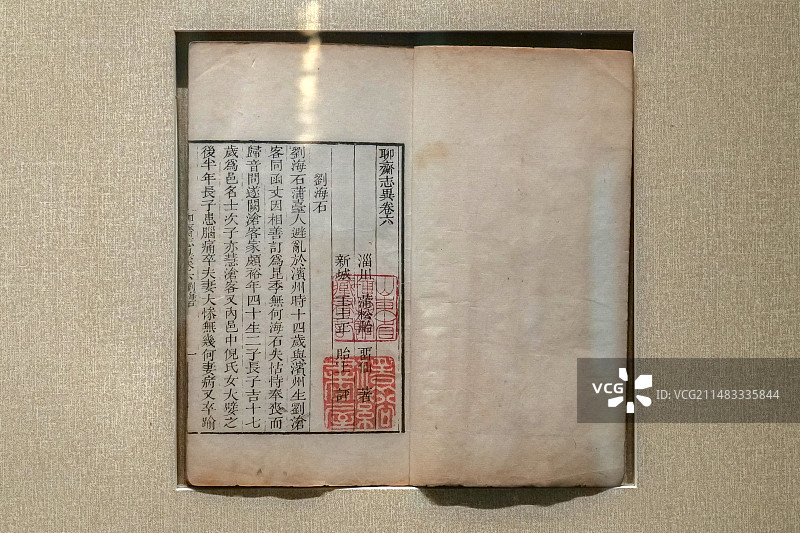 聊齋志異卷六
淄川 蒲松齡 著
新城 王士正 評
劉海石
劉海石蒲臺人避亂於濱州時十四歲與濱州生劉滄
客同函丈因相善訂爲昆季無何海石失怙恃奉喪而
歸音問遂闕滄客家頗裕年四十生二子長子吉十七
歲爲邑名士次子亦慧滄客又內邑中倪氏女大嬖之
後半年長子患腦痛卒夫妻大慘無幾何妻病又卒踰
劉海石 一
VCG
VCG211483335844